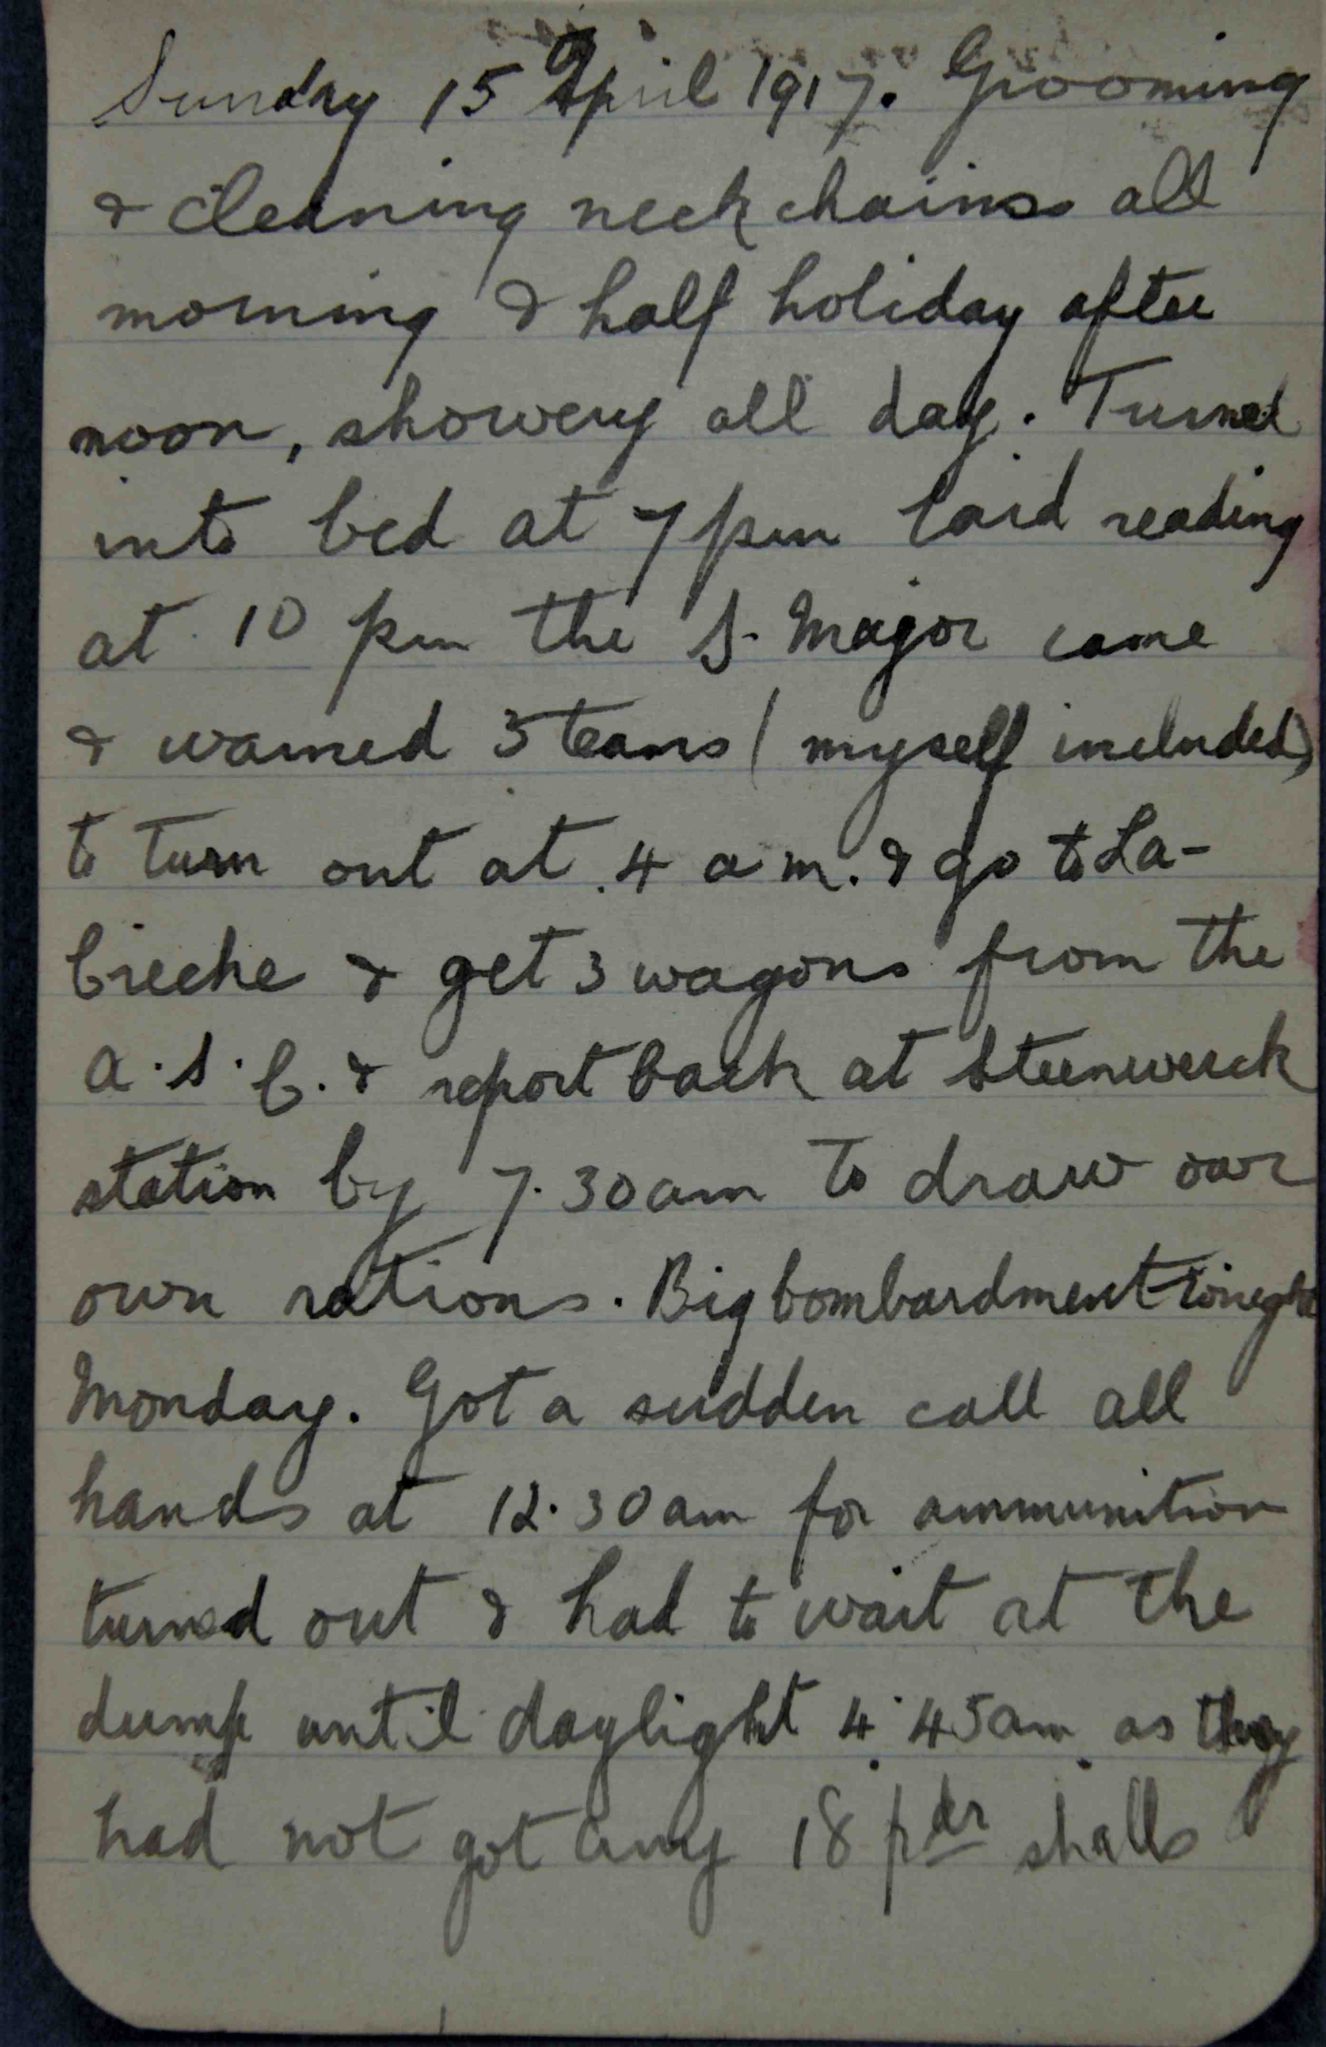 Sunday 15 April 1917. Grooming
& cleaning neck chains all
morning & half holiday after
noon, showery all day. Turned
into bed at 7 pm laid reading
at 10 pm the S. Major came
& warned 3 teams (myself included)
to turn out at 4 a m. & go to La-
creche & get 3 wagons from the
A.S.C. & report back at Steenwerck
station by 7.30 am to draw our
own rations. Big bombardment tonight
Monday. Got a sudden call all
hands at 12.30 am for ammunition
turned out & had to wait at the
dump until daylight 4.45 am as they
had not got any 18 pdr shells